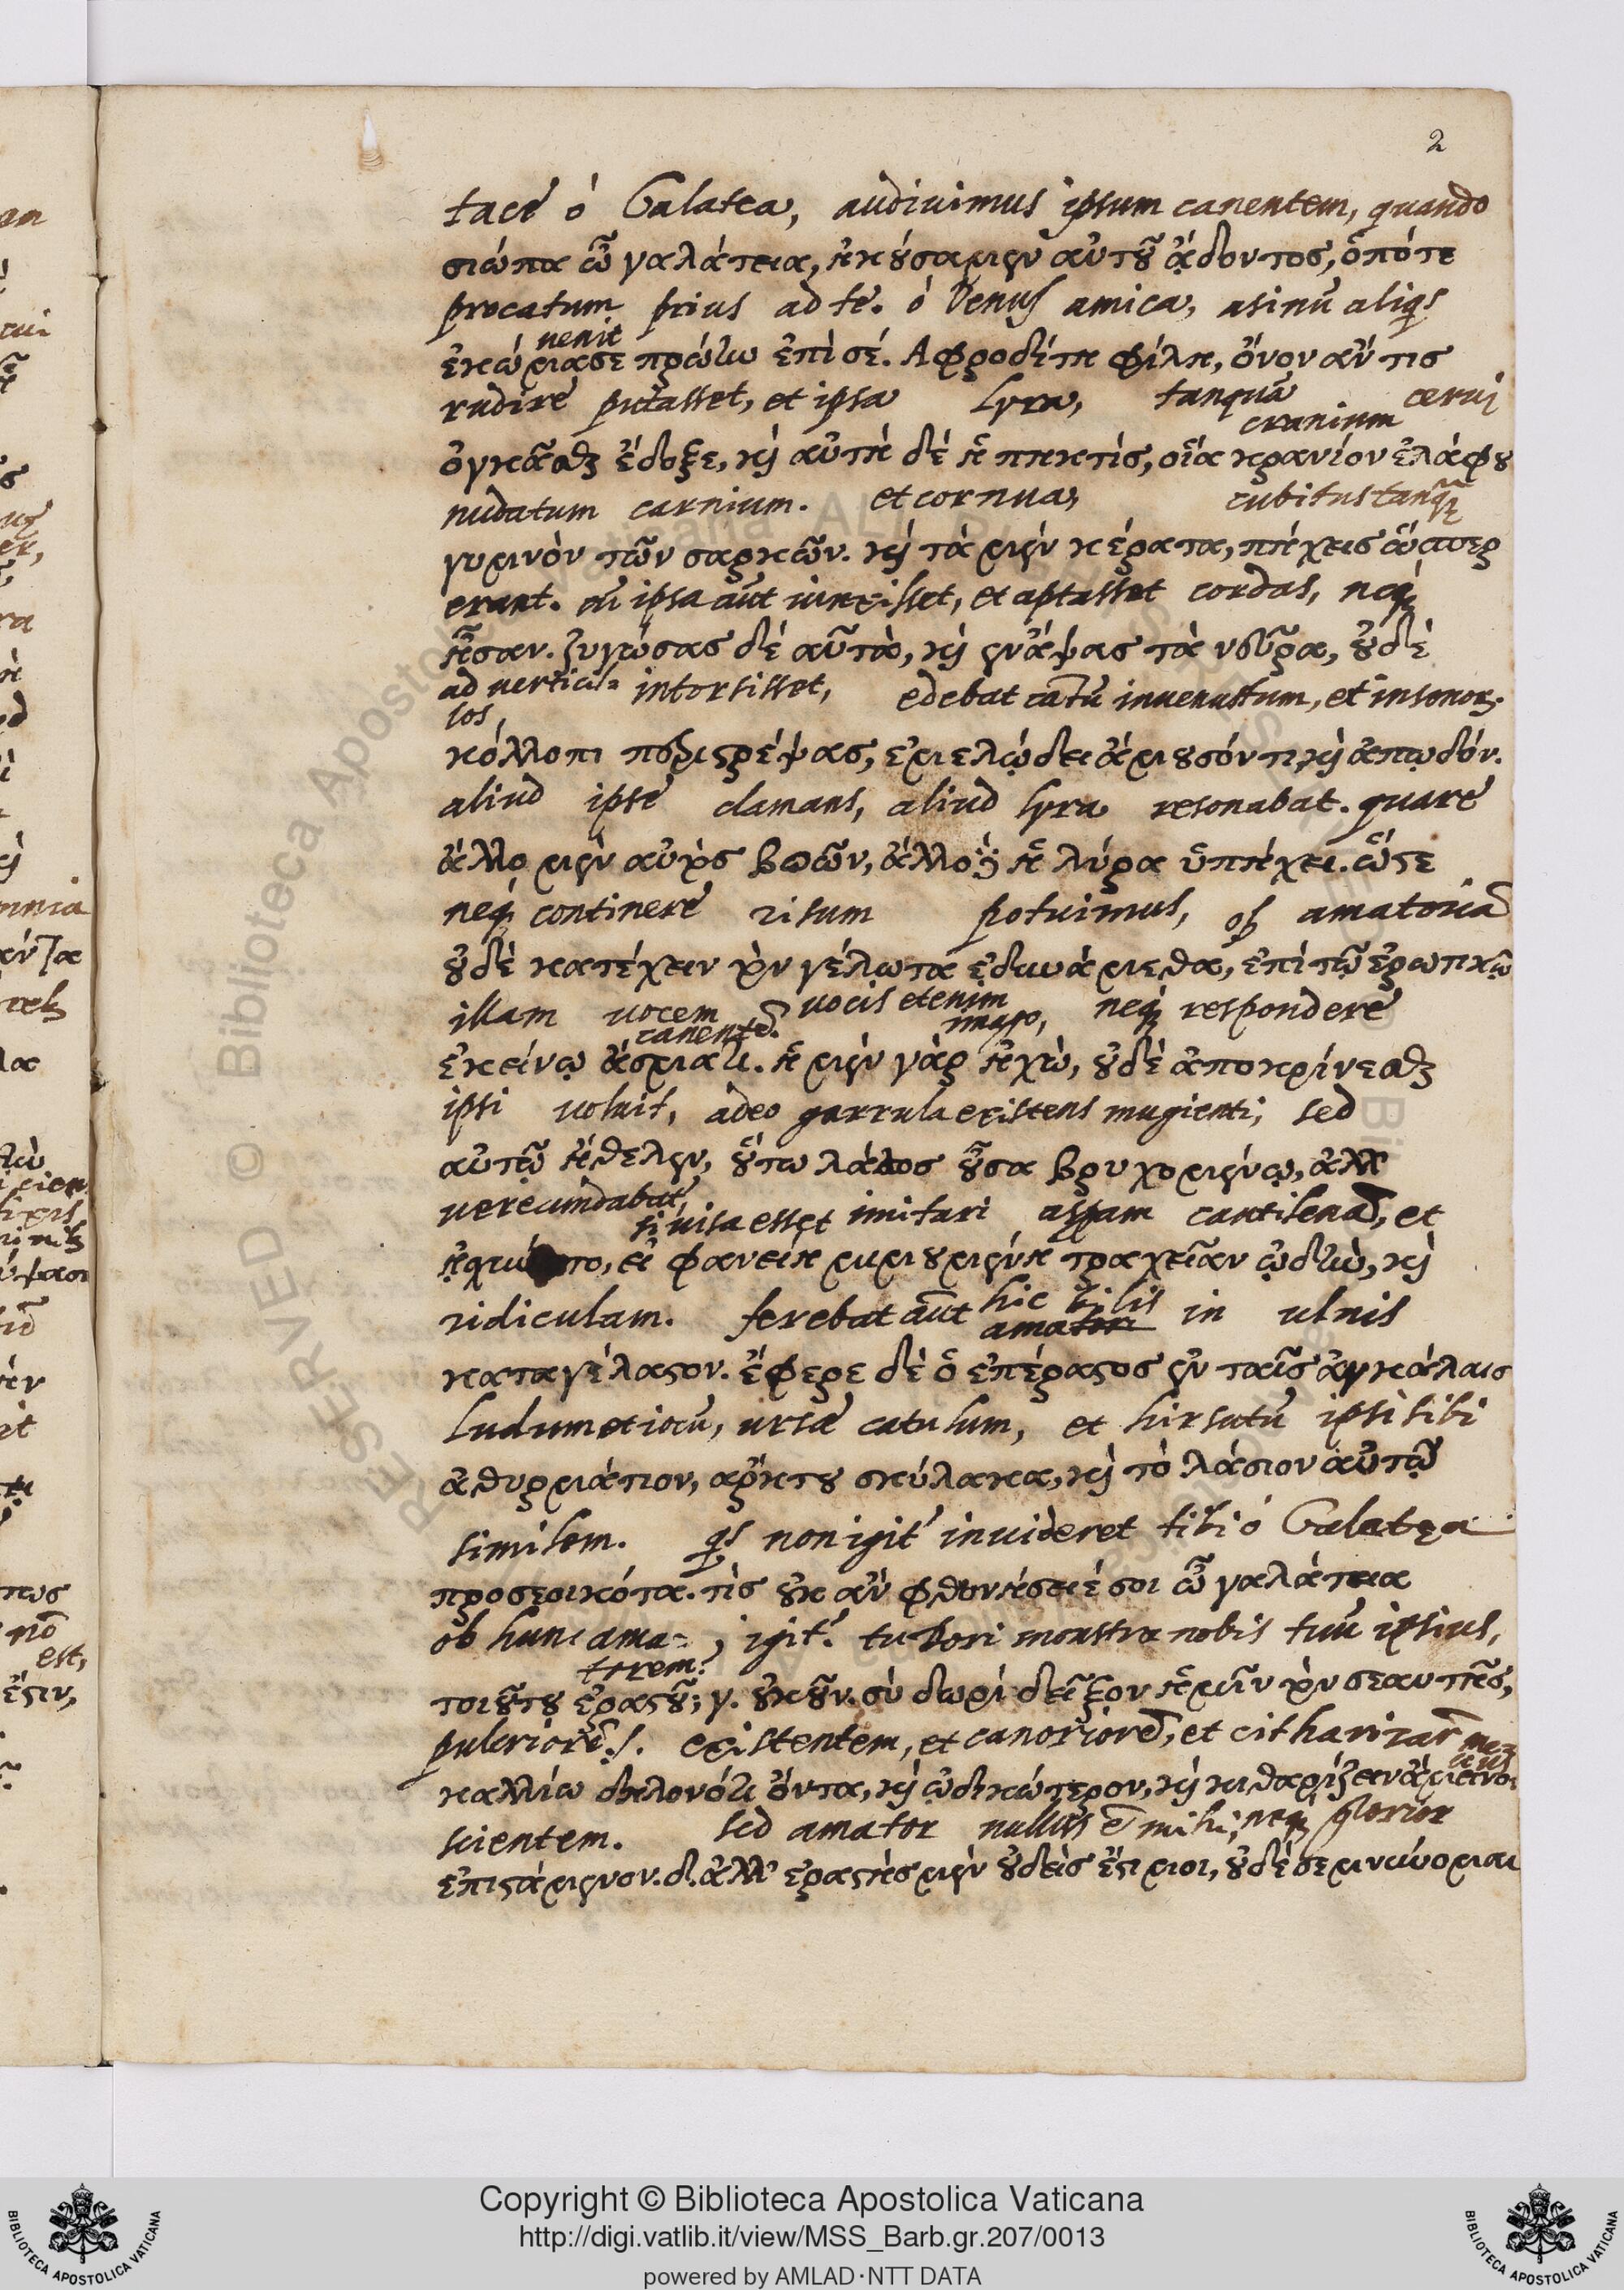 2
tace ó Galatea, audiuimus ipsum canentem, quando
σιώπα ὦ γαλάτεια, ἠκούσαμεν αὐτοῦ ᾄδοντος, ὁπότε
procatum prius ad te. ó Venus amica, asinũ aliqs
uenit
ἐκώμασε πρώτω ἐπὶ σέ. Αφροδίτη φίλη, ὄνον ἄν τις
rudire putasset, et ipsa Lyra, tanquã cerui
cranium
ὀγκᾶσθαι ἔδοξε, καὶ αὐτὴ δὲ ἡ πηκτίς, οἵα κρανίον ἐλάφου
nudatum carnium. et cornua, cubitus tanq̃
γυμνὸν τῶν σαρκῶν. καὶ τὰ μὲν κέρατα, πήχεις ὥσπερ
erant. cũ ipsa aũt iunxisset, et aptasset cordas, neq
ἦσαν. ζυγώσας δὲ αὐτὰ, καὶ ἐνάψας τὰ νεῦρα, οὐδὲ
ad uerticil= intorsisset, edebat catũ inuenustum, et insonor.
los,
κόλλοπι περιστρέψας, ἐμελῴδει ἄμουσόν τι καὶ ἀπῳδόν.
aliud ipse clamans, aliud lyra resonabat. quare
ἄλλο μὲν αὐτὸς βοῶν, ἄλλο δὲ ἡ λύρα ὑπήχει. ὥστε
neq continere risum potuimus, ob amatoriã
οὐδὲ κατέχειν τὸν γέλωτα ἐδυνάμεθα, ἐπὶ τῷ ἐρωτικῷ
illam uocem uocis etenim neq respondere
canentẽ. imago,
ἐκείνῳ ᾄσματι. ἡ μὲν γὰρ ἠχὼ, οὐδὲ ἀποκρίνεσθαι
ipsi uoluit, adeo garrula existens mugienti, sed
αὐτῷ ἤθελεν, οὕτω λάλος οὖσα βρυχομένῳ, ἀλλ'
uerecundabat,
si uisa esset imitari asperam cantilenã, et
ᾐσχύνετο, εἰ φανείη μιμουμένη τραχεῖαν ᾠδὴν, καὶ
ridiculam. ferebat aũt hic in ulnis
amator
καταγέλαστον. ἔφερε δὲ ὁ ἐπέραστος ἐν ταῖς ἀγκάλαις
ludum et iocũ, ursæ catulum, et hirsutũ ipsi sibi
ἀθυρμάτιον, ἄρκτου σκύλακα, καὶ τὸ λάσιον αὐτῷ
similem. qs non igit' inuideret tibi ó Galatea
προσεοικότα. τίς οὐκ ἂν φθονήσειέ σοι ὦ γαλάτεια
ob hunc ama=, igit. tu Dori monstra nobis tuũ ipsius,
torem?
τοιούτου ἐραστοῦ; γ. οὐκοῦν. σὺ δωρὶ δεῖξον ἡμῖν τὸν σεαυτῆς,
pulcriorẽ s. existentem, et canoriorẽ, et citharizar me=
lius
καλλίω δηλονότι ὄντα, καὶ ᾠδικώτερον, καὶ κιθαρίζειν ἄμεινον
scientem. sed amator nullus ẽ mihi, neq glorior
ἐπιστάμενον. δ. ἀλλ' ἐραστὴς μὲν οὐδεὶς ἔστι μοι, οὐδὲ σεμνύνομαι
Copyright © Biblioteca Apostolica Vaticana
http://digi.vatlib.it/view/MSS_Barb.gr.207/0013
powered by AMLAD·NTT DATA